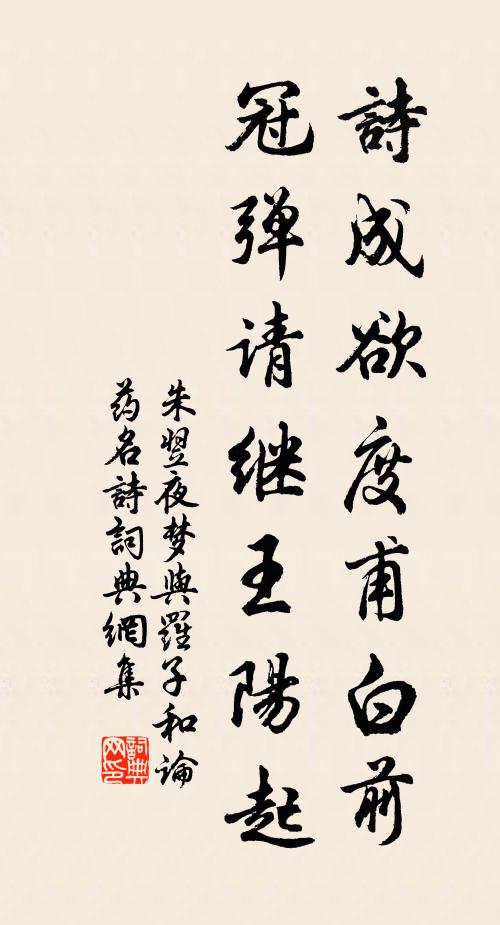 詩成欲度甫白前
冠弹请继王陽起
朱翌夜梦與羅子和論
药名詩詞典網集
詞典网印